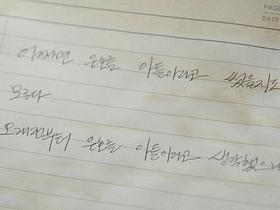 PAGE
DATE
어쩌면 은호를 아들이라고 썼을지도
모른다.
오래전부터 은호를 아들이라고 생각했으니